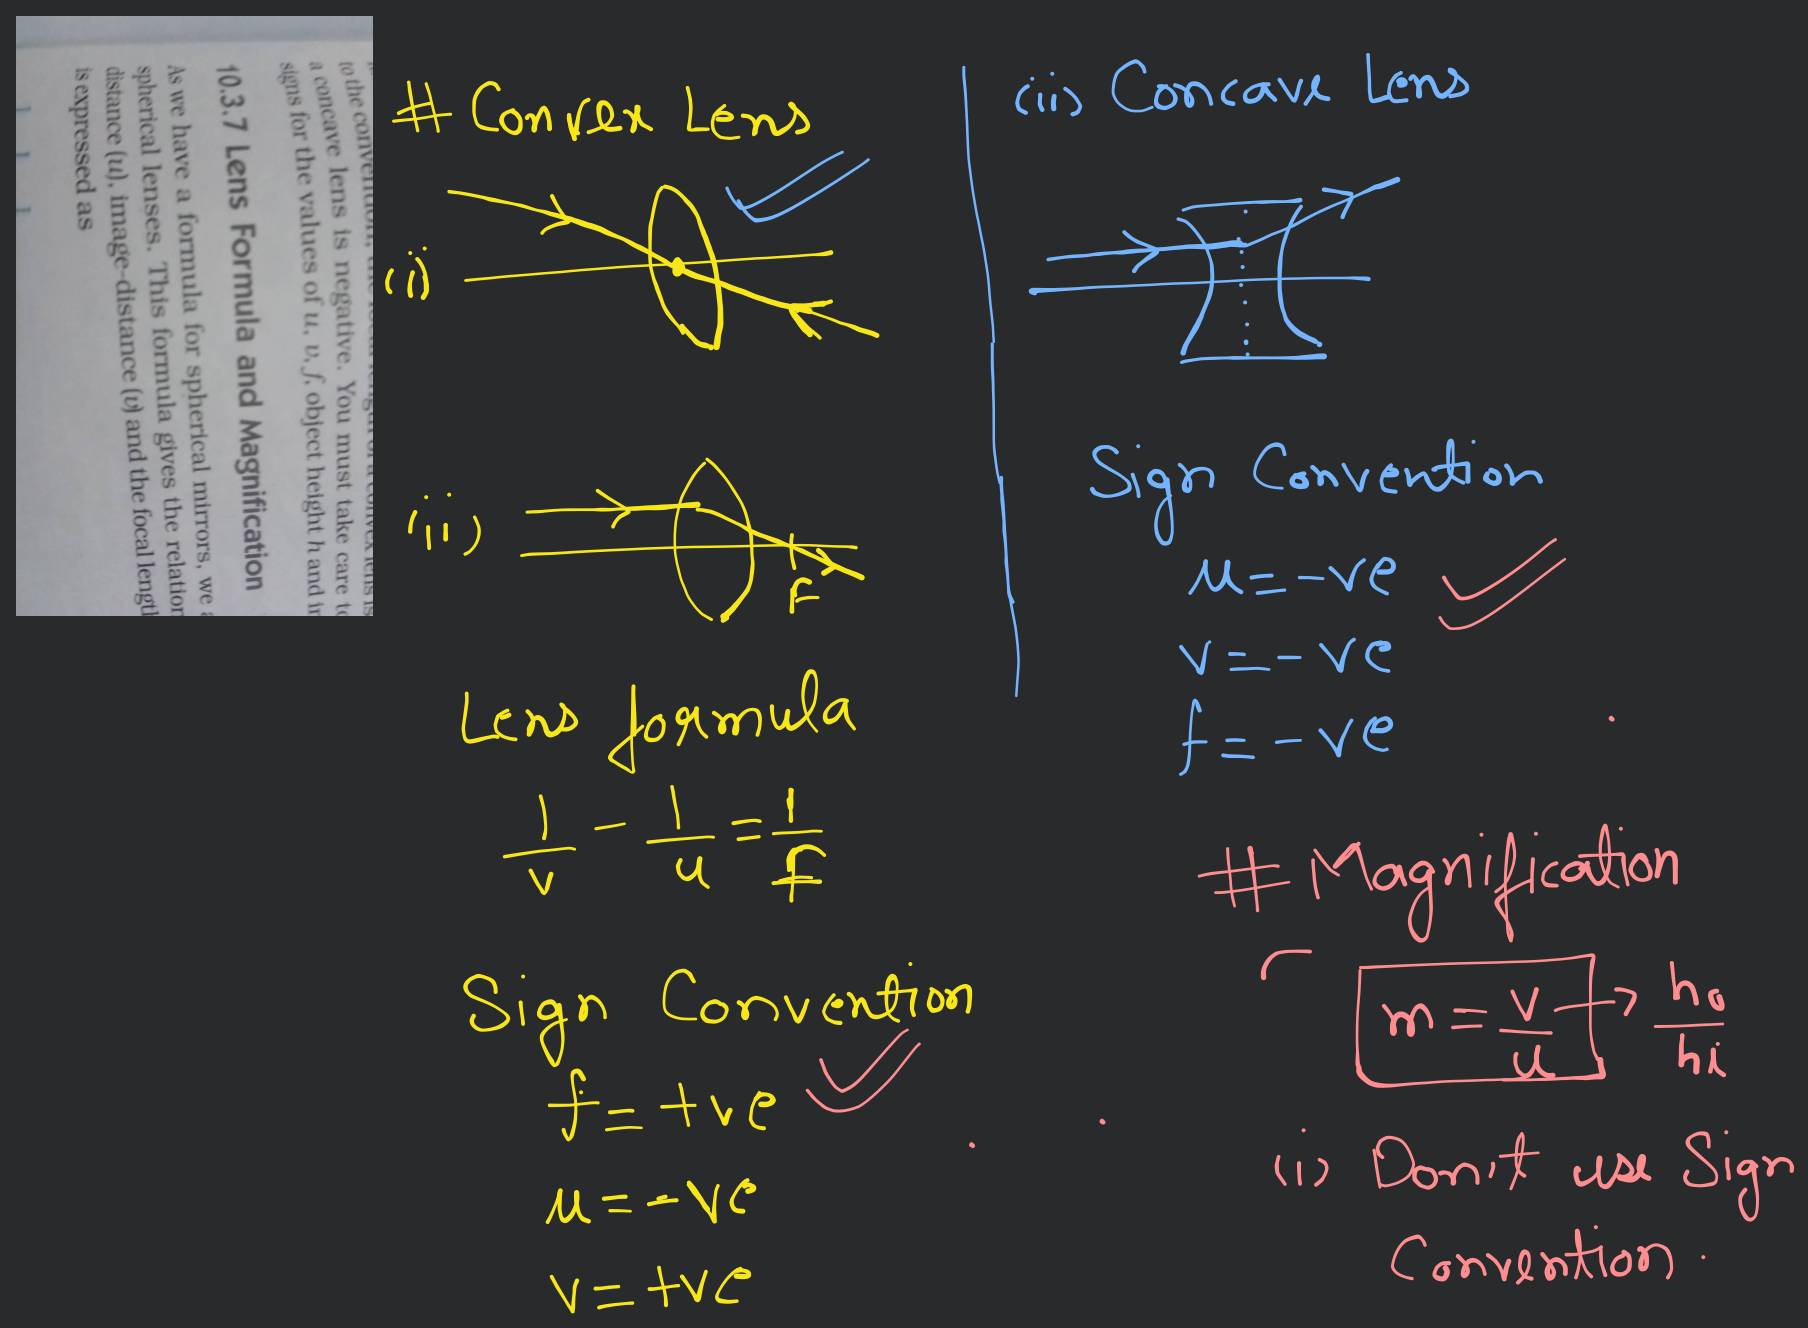 to the convention,
a concave lens is negative. You must take care to
signs for the values of u, v, f, object height h and
10.3.7 Lens Formula and Magnification
As we have a formula for spherical mirrors, we
spherical lenses. This formula gives the relation
distance (u), image-distance (v) and the focal length
is expressed as
1 1 1
# Convex Lens
(i)
(ii)
F
Lens formula
1/v - 1/u = 1/f
Sign Convention
f = +ve
u = -ve
v = +ve
(ii) Concave Lens
Sign Convention
u = -ve
v = -ve
f = -ve
# Magnification
m = v/u → ho/hi
(i) Don't use Sign
Convention.